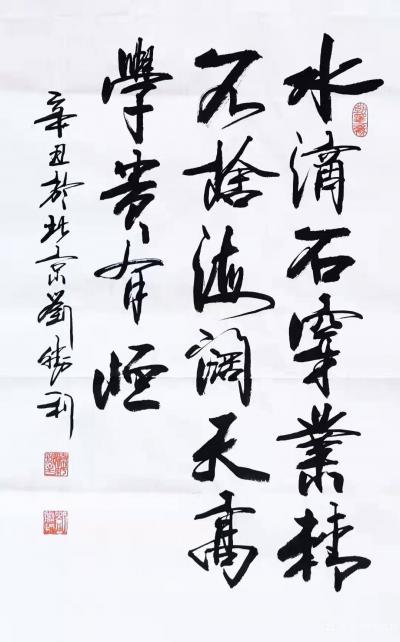 水滴石穿業精
不捨海闊天高
學貴有恆
辛丑於北京劉勝利